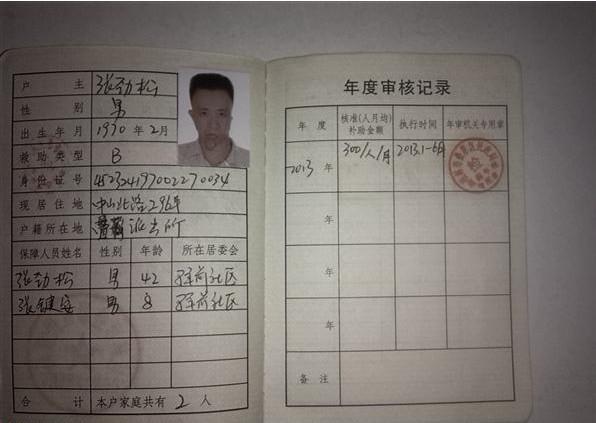 户主 张劲松
性别 男
出生年月 1970年2月
救助类型 B
身份证号 452324197002270034
现居住地 中山北路296号
户籍所在地 派出所
保障人员姓名 性别 年龄 所在居委会
张劲松 男 42 社区
张健安 男 8 社区
合计 本户家庭共有 2 人
年度审核记录
年度 核准(人月均)补助金额 执行时间 年审机关专用章
2013年 300/人/月 2013.1-6月
年
年
备注